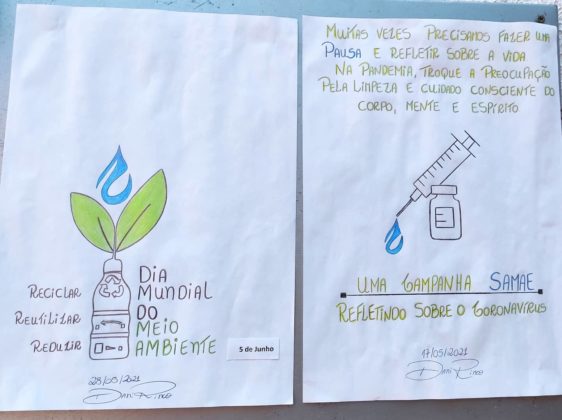 RECICLAR
REUTILIZAR
REDUZIR
DIA
MUNDIAL
DO
MEIO
AMBIENTE
5 de Junho
28/05/2021
MUITAS VEZES PRECISAMOS FAZER UMA
PAUSA E REFLETIR SOBRE A VIDA
NA PANDEMIA, TROQUE A PREOCUPAÇÃO
PELA LIMPEZA E CUIDADO CONSCIENTE DO
CORPO, MENTE E ESPÍRITO
UMA CAMPANHA SAMAE
REFLETINDO SOBRE O CORONAVÍRUS
17/05/2021